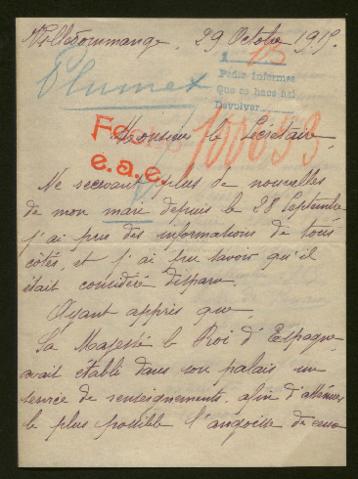 Villedommange, 29 Octobre 1915.
Plumet
Pedir informes
Que se hace hai
Devolver
Monsieur le Secrétaire,
e.a.e.
Ne recevant plus de nouvelles
de mon mari depuis le 28 Septembre
j'ai pris des informations de tous
côtés, et j'ai pu savoir qu'il
était considéré disparu.
Ayant appris que,
Sa Majesté le Roi d'Espagne,
avait établi dans son palais un
service de renseignements, afin d'atténuer
le plus possible l'angoisse de ceux